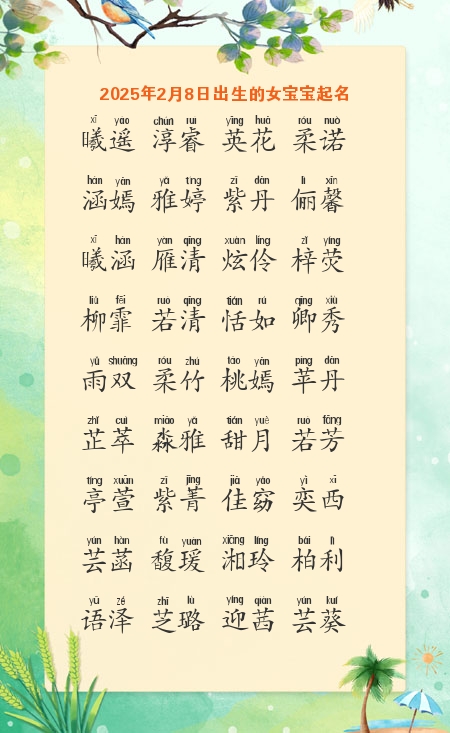 2025年2月8日出生的女宝宝起名
xī yáo chún ruì yīng huā róu nuò
曦遥 淳睿 英花 柔诺
hán yān yǎ tíng zǐ dān lì xīn
涵嫣 雅婷 紫丹 俪馨
xī hán yàn qīng xuàn líng zǐ yíng
曦涵 雁清 炫伶 梓荧
liǔ fēi ruò qīng tián rú qīng xiù
柳霏 若清 恬如 卿秀
yǔ shuāng róu zhú táo yān píng dān
雨双 柔竹 桃嫣 苹丹
zhǐ cuì miǎo yǎ tián yuè ruò fāng
芷萃 淼雅 甜月 若芳
tíng xuān zǐ jīng jiā yǎo yì xī
亭萱 紫菁 佳窈 奕西
yún hàn fù yuàn xiāng líng bǎi lì
芸菡 馥瑗 湘玲 柏利
yǔ zé zhī lù yíng qiàn yún kuí
语泽 芝璐 迎茜 芸葵